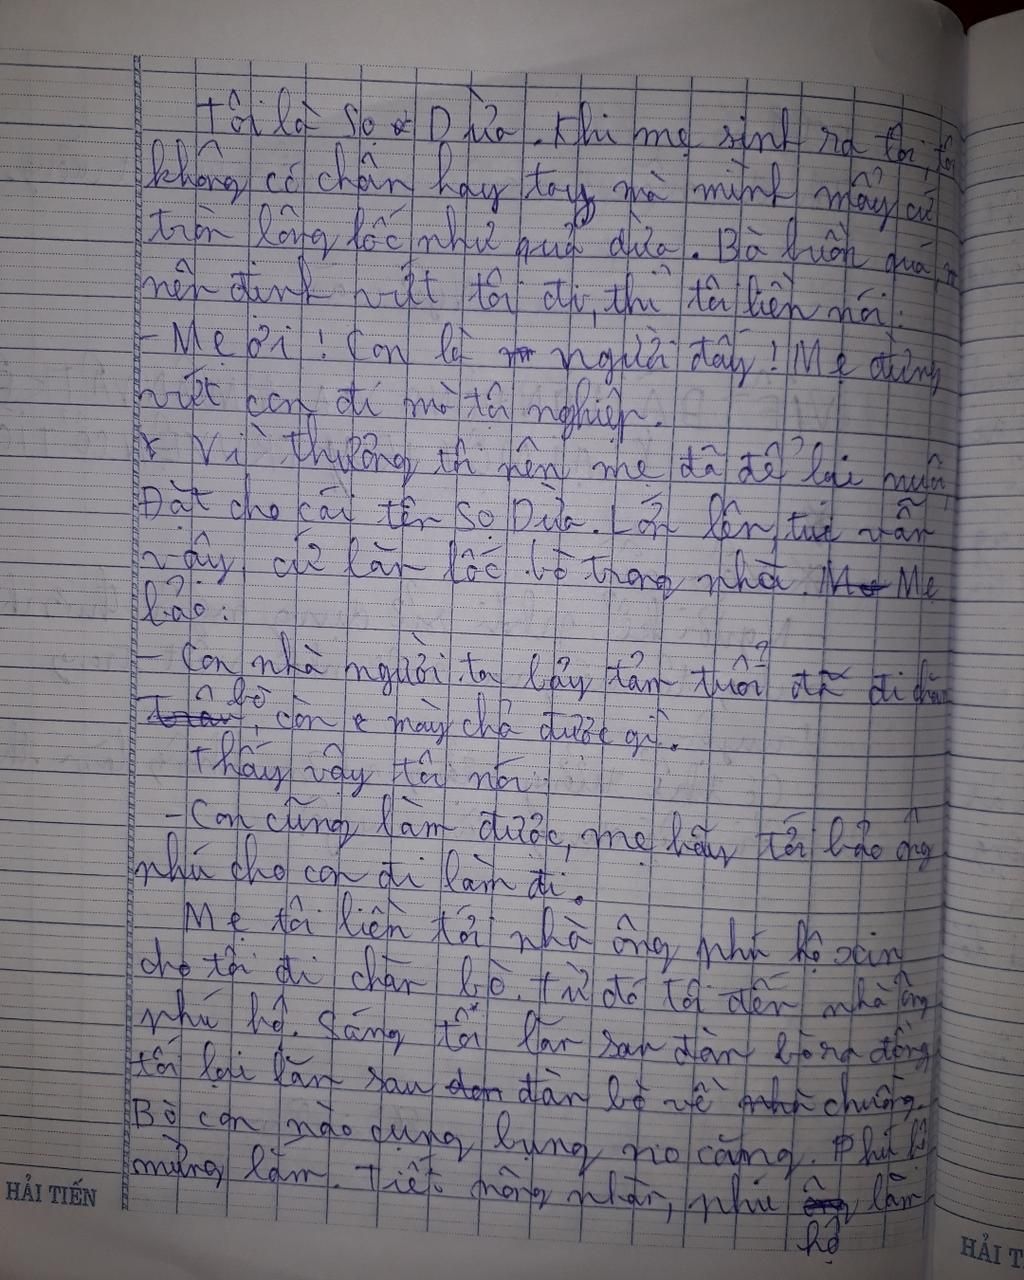 Tôi là Sọ Dừa. Khi mẹ sinh ra tôi, tôi
không có chân hay tay mà mình mẩy cứ
tròn lông lốc như quả dừa. Bà buồn quá
nên định vứt tôi đi, thì tôi liền nói:
- Mẹ ơi! Con là người đấy! Mẹ đừng
vứt con đi mà tội nghiệp.
Vì thương thì nên mẹ đã để lại nuôi
Đặt cho cái tên Sọ Dừa. Lớn lên, tui vẫn
vậy, cứ lăn lốc bò trong nhà. Mẹ
bảo:
- Con nhà người ta bảy tám tuổi đã đi chăn
bò, còn mày chả được gì.
Thấy vậy tôi nói:
- Con cũng làm được, mẹ hãy tới bảo ông
phú cho con đi làm đi.
Mẹ tôi liền tới nhà ông phú hộ xin
cho tôi đi chăn bò. Từ đó tôi đến nhà ông
phú hộ. Sáng tôi lăn sau đàn bò ra đồng
tối lại lăn sau đàn bò về chuồng.
Bò con nào dụng bụng no căng. Phú hộ
mừng lắm. Tiết mông nhàn, phú lắm
hộ
HẢI TIẾN
HẢI T